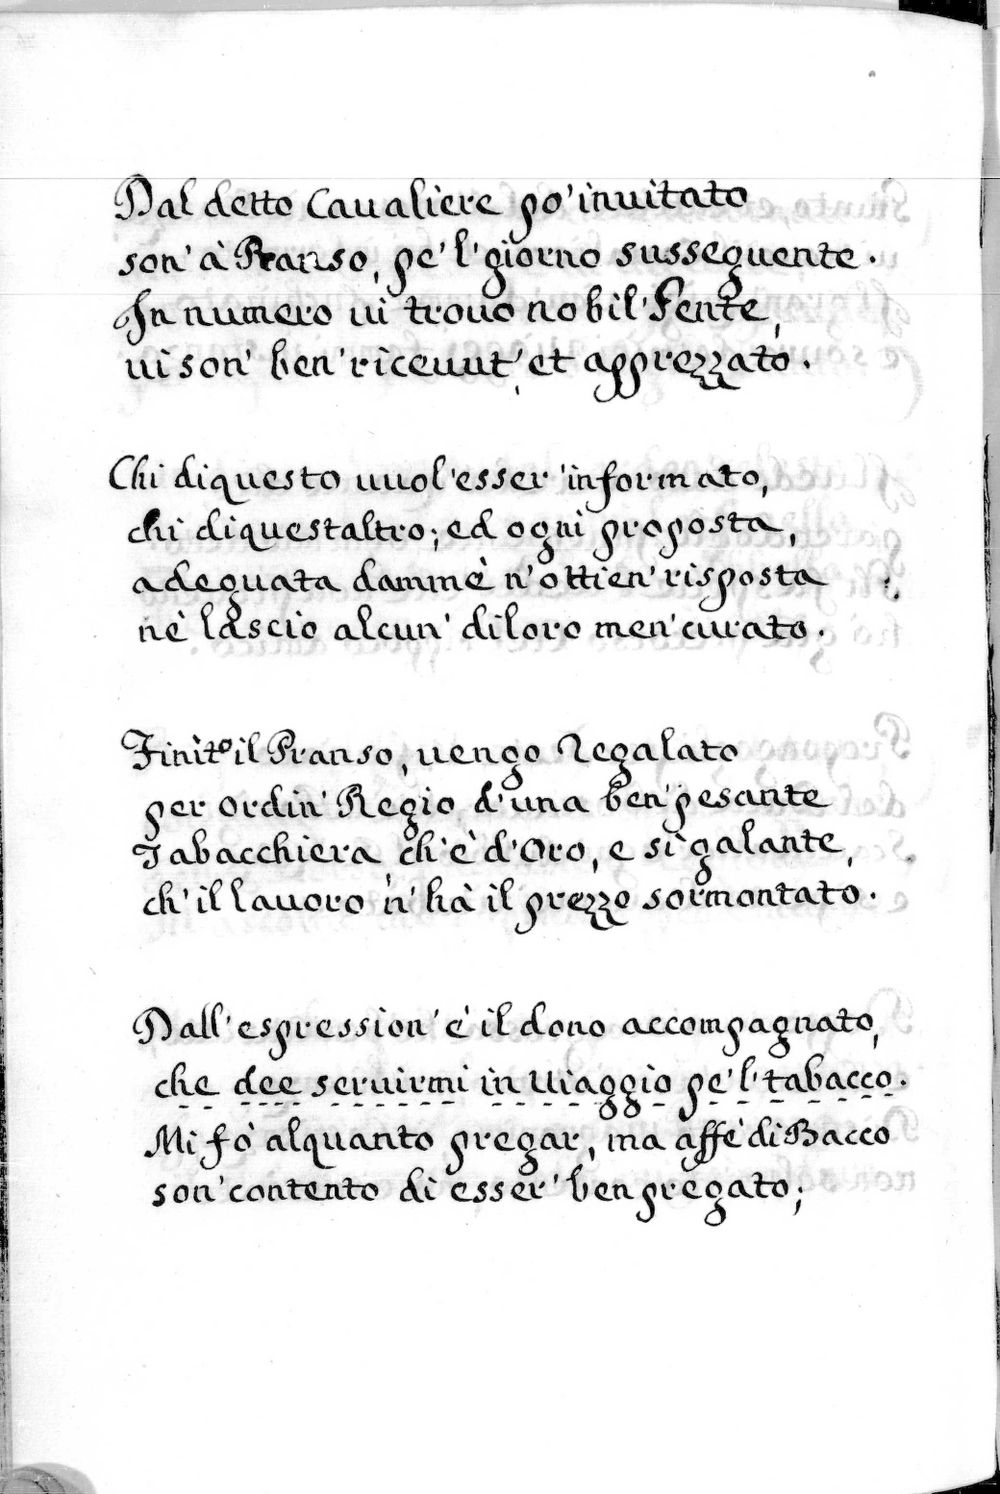 Dal detto Caualiere po' inuitato
son' à Pranso, pe'l' giorno susseguente.
In numero ui trouo nobil' Gente,
ui son' ben' riceuut', et apprezzato.
Chi di questo uuol' esser' informato,
chi di quest altro; ed ogni proposta,
adequata dammè n'ottien' risposta
nè lascio alcun' di loro men' curato.
Finito il Pranso, uengo Regalato
per ordin' Regio, d'una ben' pesante
Tabacchiera, ch'è d'Oro, e sì galante,
ch' il lauoro n' hà il prezzo sormontato.
Dall' espression' è il dono accompagnato,
che dee seruirmi in Uiaggio pe'l' tabacco.
Mi fò alquanto pregar, ma affè di Bacco
son' contento di esser' ben pregato;